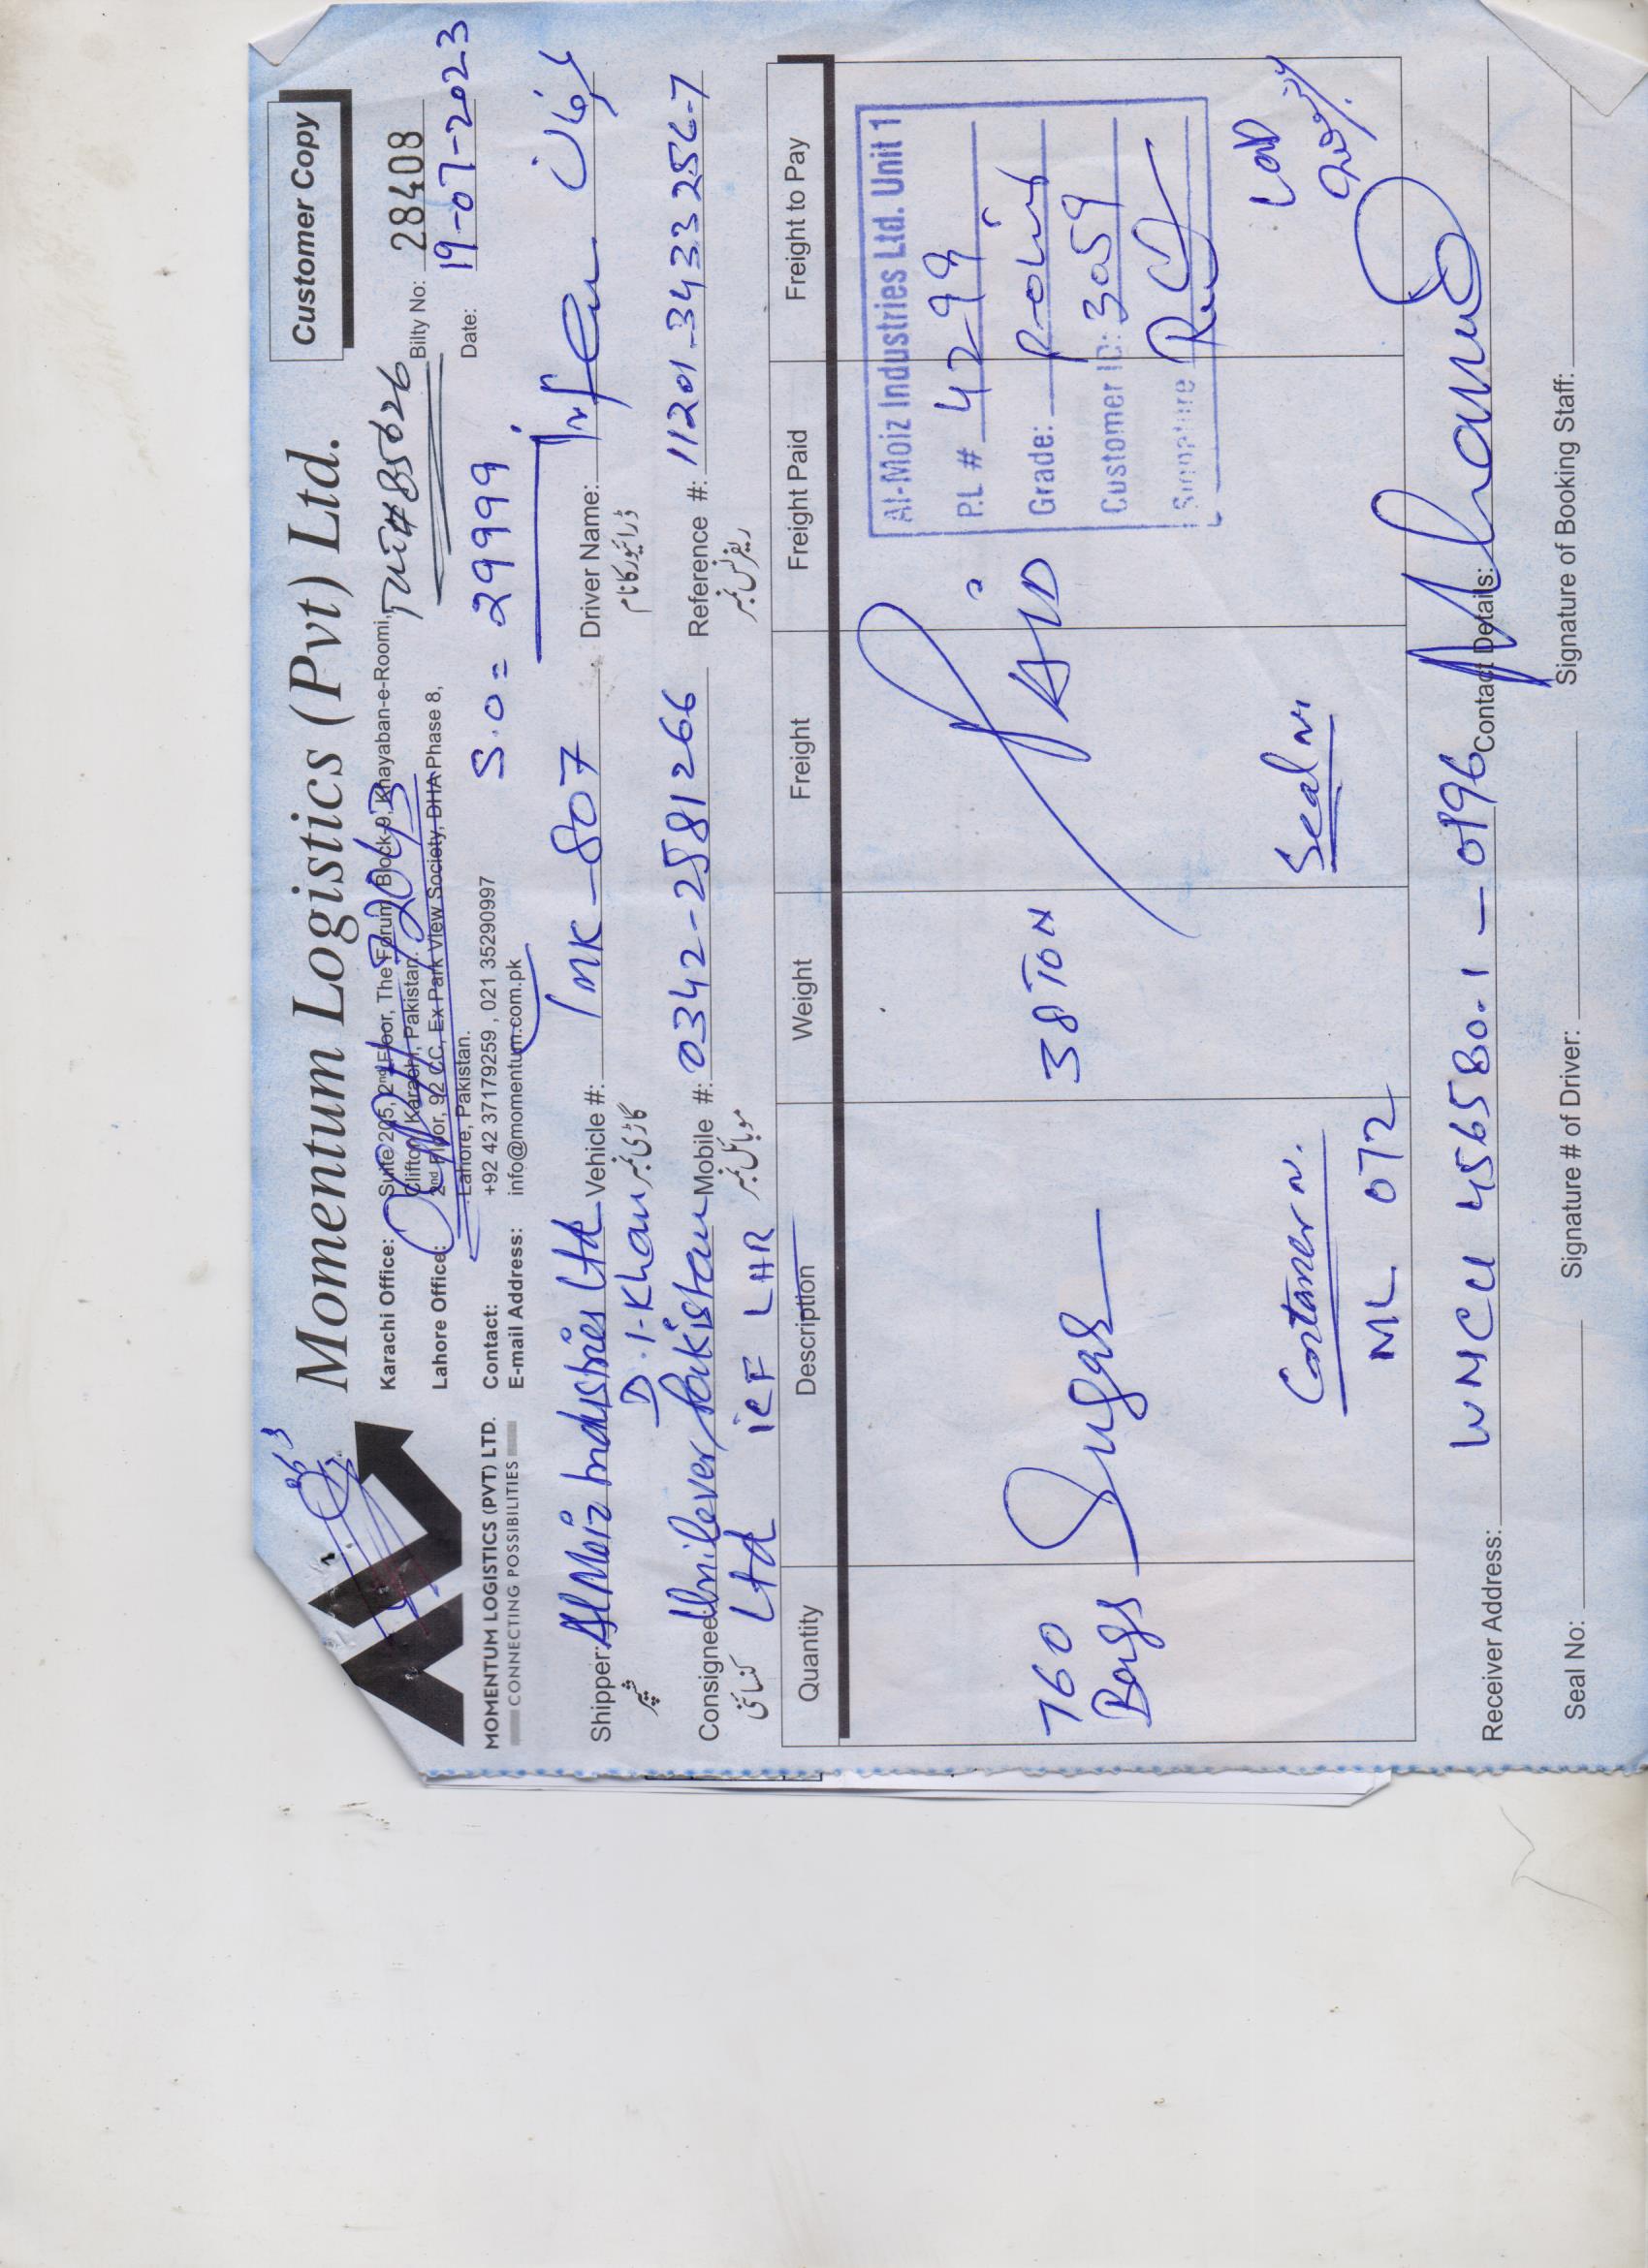 Customer Copy
Momentum Logistics (Pvt) Ltd.
MOMENTUM LOGISTICS (PVT) LTD.
CONNECTING POSSIBILITIES
Karachi Office: Suite 205, 2nd Floor, The Forum, Block-9, Khayaban-e-Roomi,
Clifton, Karachi, Pakistan.
Lahore Office: 2nd Floor, 92 CC, Ex Park View Society, DHA Phase 8,
Lahore, Pakistan.
Contact: +92 42 37179259 , 021 35290997
E-mail Address: info@momentum.com.pk
Bilty No: 28408
Date: 19-07-2023
S.O = 29999
Shipper: Al Moiz Industries Ltd
D.I-Khan
شپر
Vehicle #: TMK-807
گاڑی نمبر
Driver Name: Irfan عرفان
ڈرائیور کا نام
Consignee: Unilever Pakistan
Ltd ICF LHR
کنسائنی
Mobile #: 0342-2581266
موبائل نمبر
Reference #: 11201-3433256-7
ریفرنس نمبر
Quantity Description Weight Freight Freight Paid Freight to Pay
760
Bags
Sugar
38 TON
PAID
Al-Moiz Industries Ltd. Unit 1
P.L # 4299
Grade:
Customer ID: 3059
Signature
Container N.
ML 072
Seal N.
Receiver Address: WMCU 456580.1 - 0196
Contact Details:
Seal No:
Signature # of Driver:
Signature of Booking Staff: